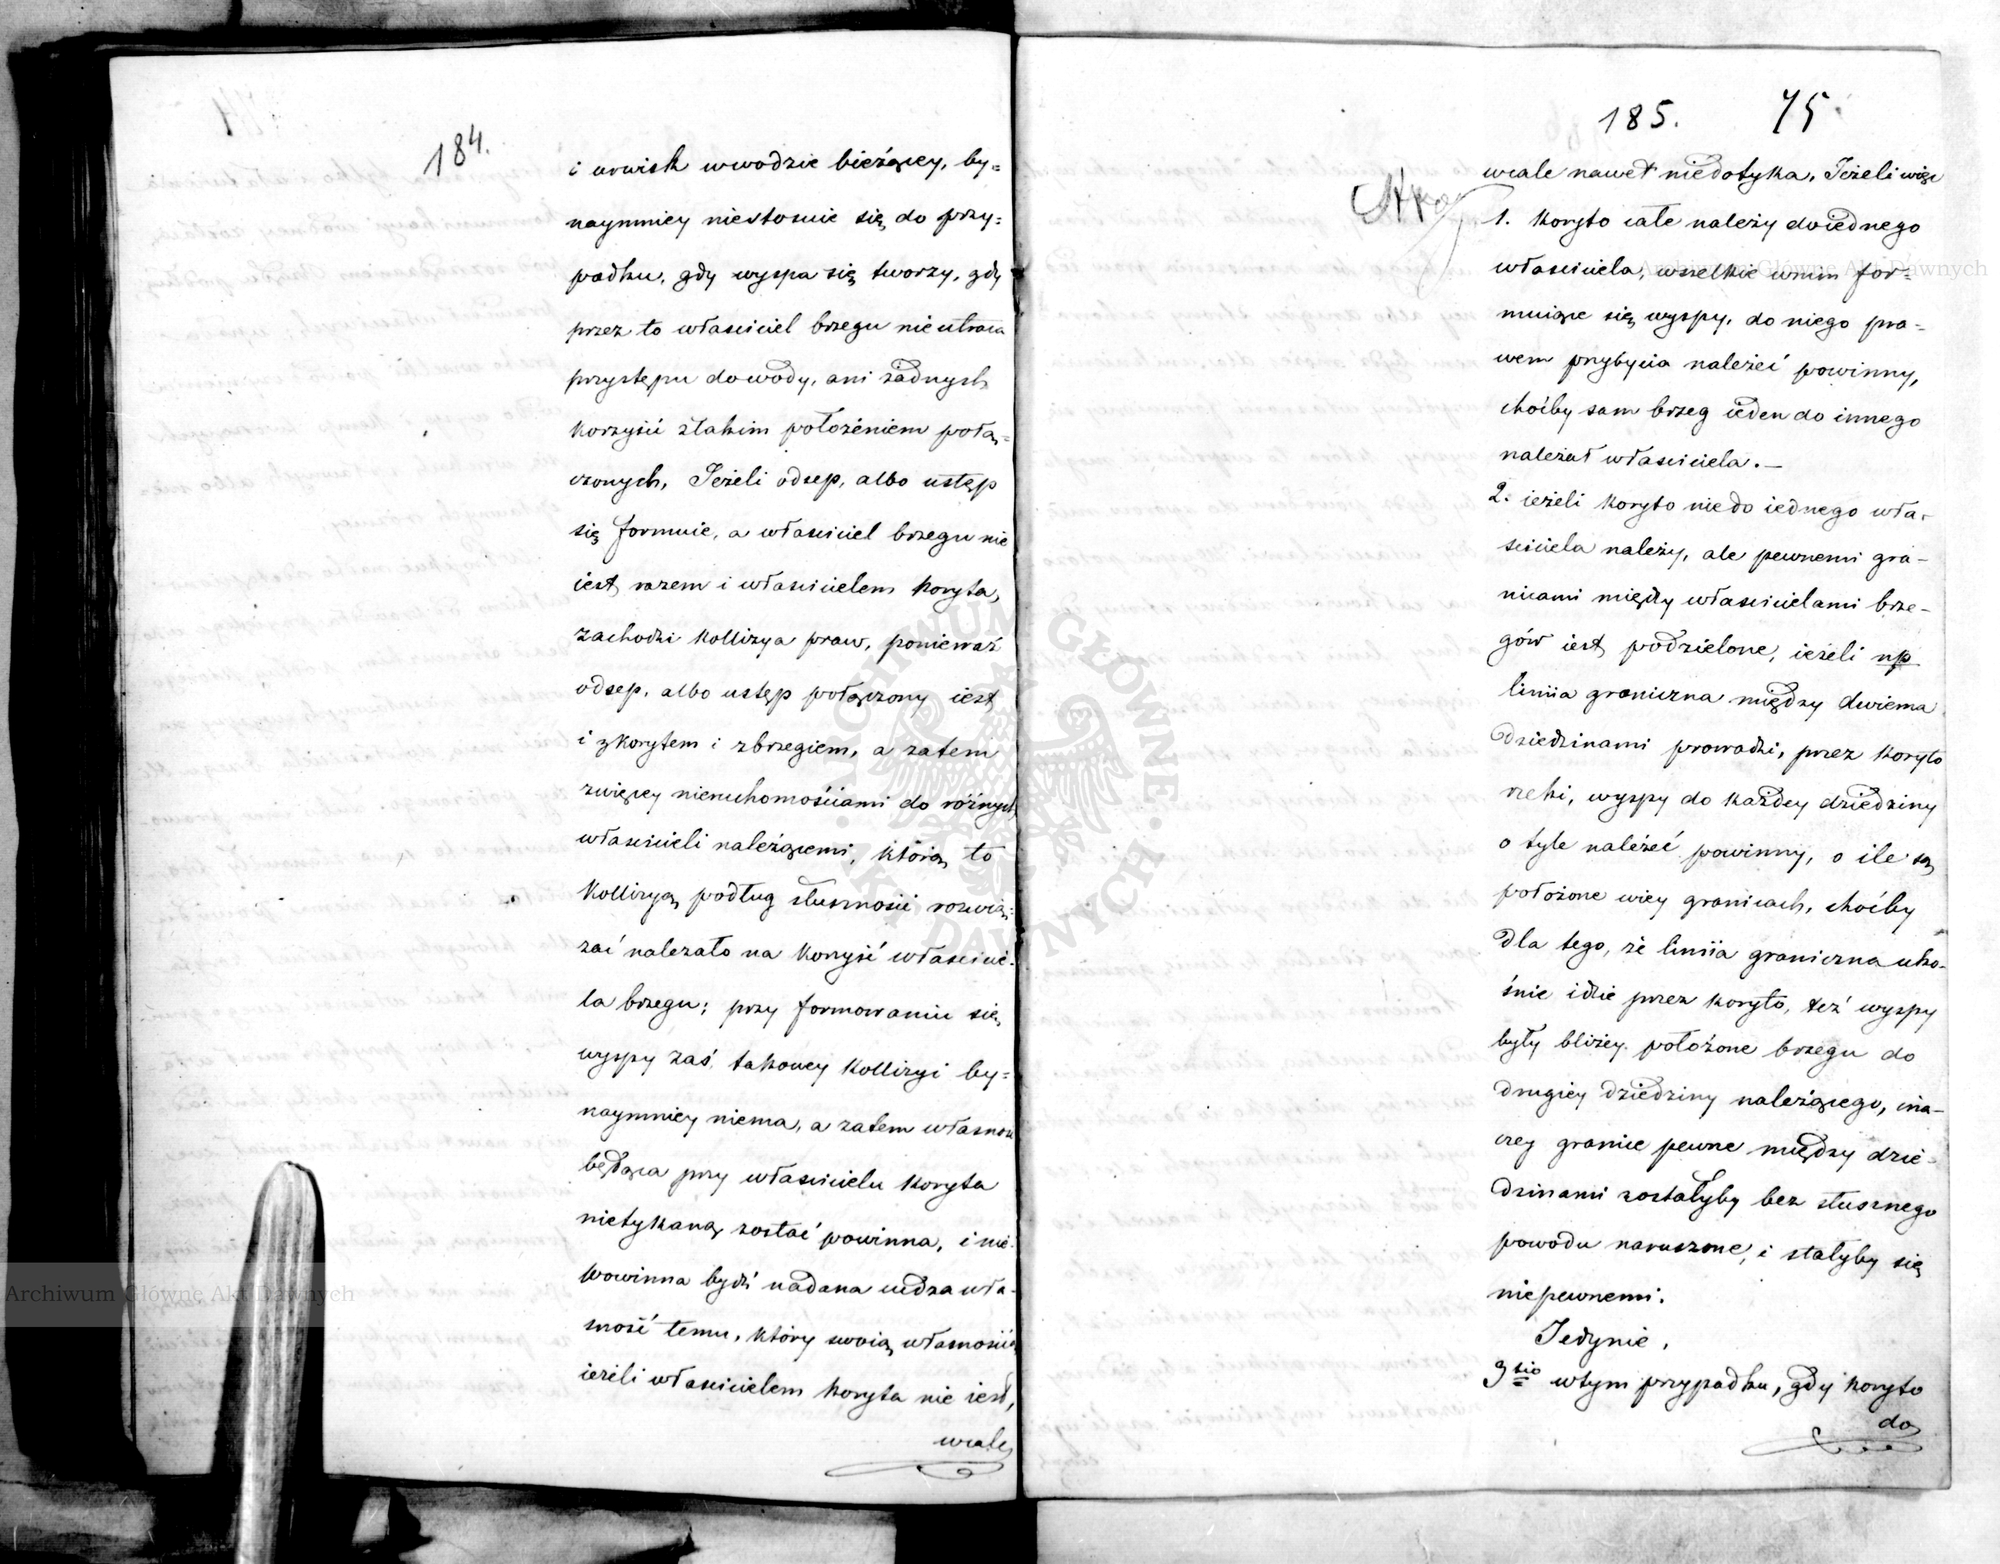 184.
i urwisk w wodzie bieżącey, by=
naymniey niestosuie się do przy=
padku, gdy wyspa się tworzy, gdy
przez to właściciel brzegu nie utraca
przystępu do wody, ani żadnych
korzyści z takim położeniem połą=
czonych, Jeżeli odsep, albo ustęp
się formuie, a właściciel brzegu nie
iest razem i właścicielem koryta,
zachodzi kollizya praw, ponieważ
odsep, albo ustęp połączony iest
i z korytem i z brzegiem, a zatem
z więcey nieruchomościami do różnych
właścicieli należącemi, którą to
Kollizyą podług słuszności rozwią=
zać należało na korzyść właścicie=
la brzegu; przy formowaniu się
wyspy zaś, takowey kollizyi by=
naymniey niema, a zatem własność
będąca przy właścicielu koryta
nietykaną zostać powinna, i nie
powinna bydź nadana cudza wła-
sność temu, który swoią własnością
ieżeli właścicielem koryta nie iest,
wcale
185. 75
wcale nawet niedotyka, Jeżeli więc
1. Koryto całe należy do iednego
właściciela, wszelkie w nim for-
muiące się wyspy, do niego pra-
wem przybycia należeć powinny,
choćby sam brzeg ieden do innego
należał właściciela. —
2. ieżeli koryto nie do iednego wła-
ściciela należy, ale pewnemi gra-
nicami między właścicielami brze-
gów iest podzielone, ieżeli np
liniia graniczna między dwiema
dziedzinami prowadzi, przez koryto
rzeki, wyspy do każdey dziedziny
o tyle należeć powinny, o ile są
położone w iey granicach, choćby
dla tego, że liniia graniczna uko-
śnie idzie przez koryto, też wyspy
były bliżey położone brzegu do
drugiey dziedziny należącego, ina-
czey granice pewne między dzie-
dzinami zostałyby bez słusznego
powodu naruszone, i stałyby się
niepewnemi.
Jedynie,
3tio w tym przypadku, gdy koryto
do
ARCHIWUM GŁÓWNE AKT DAWNYCH
Archiwum Główne Akt Dawnych
Archiwum Główne Akt Dawnych